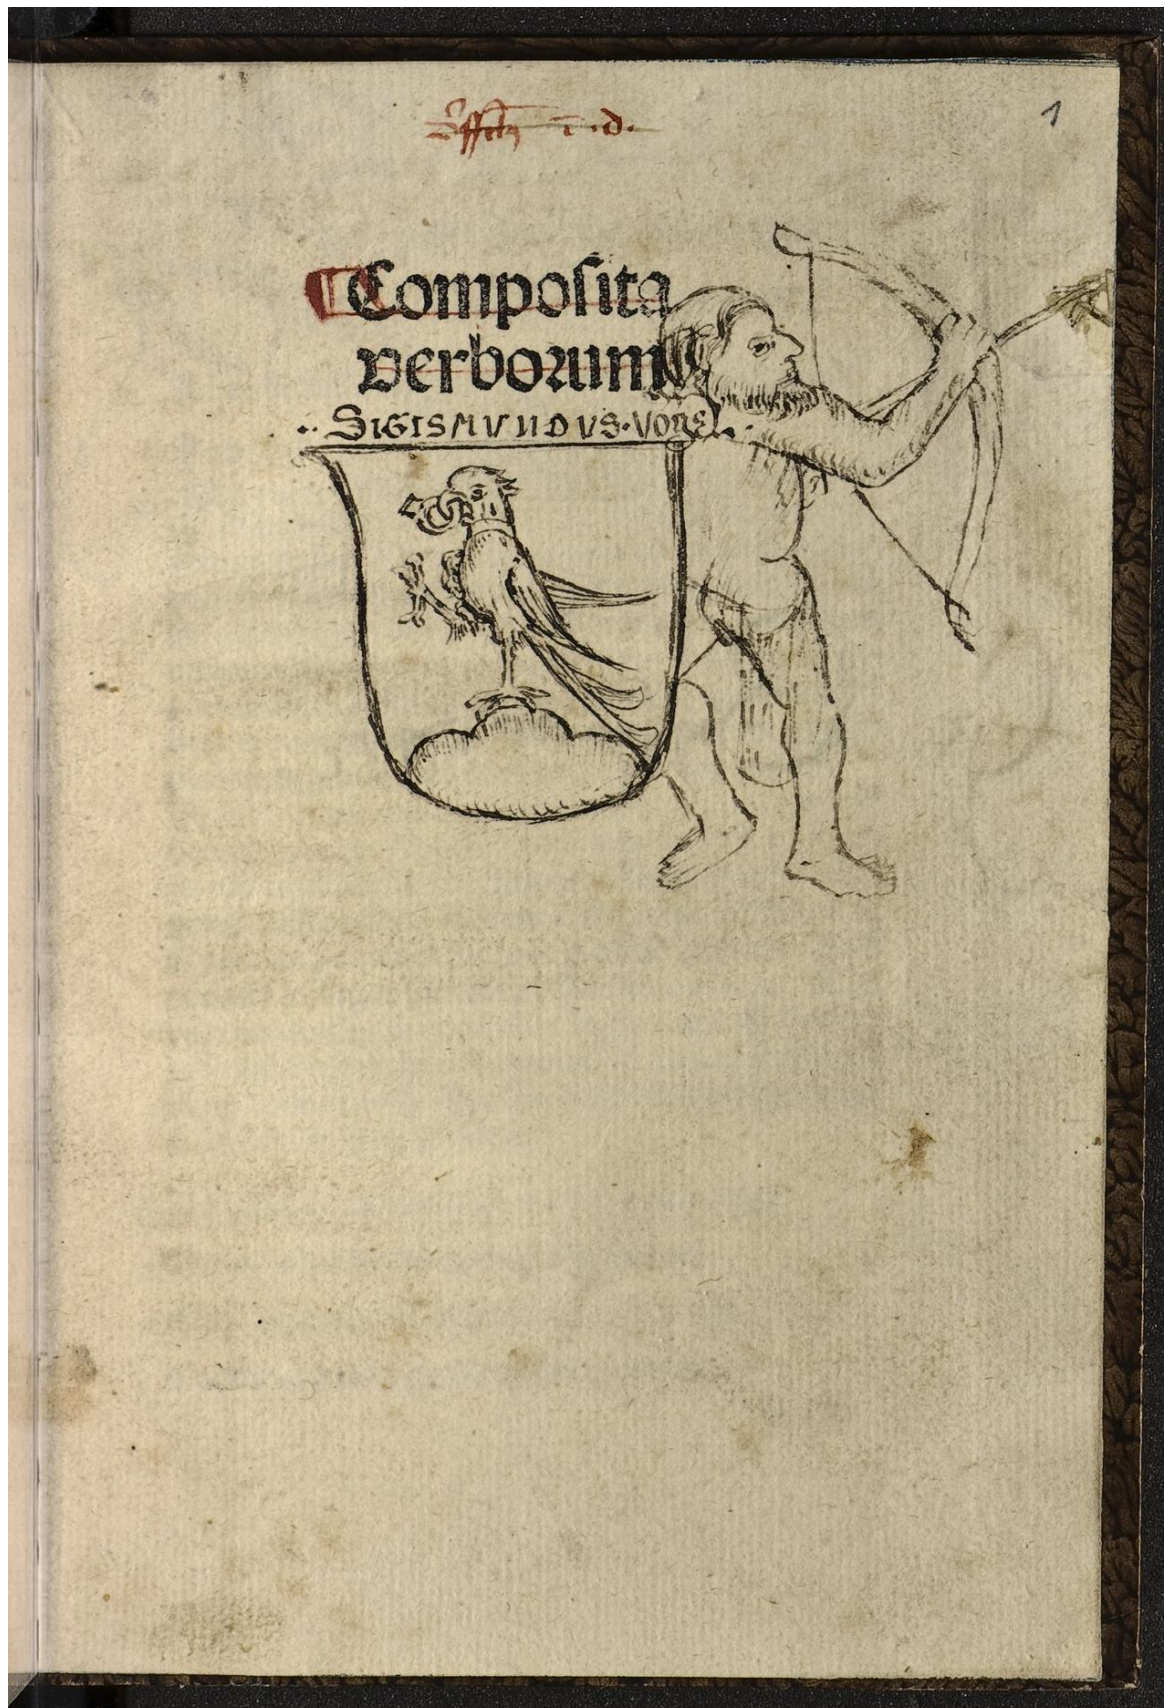 1
Compoſita
verborum
SIGISMVNDVS·VO